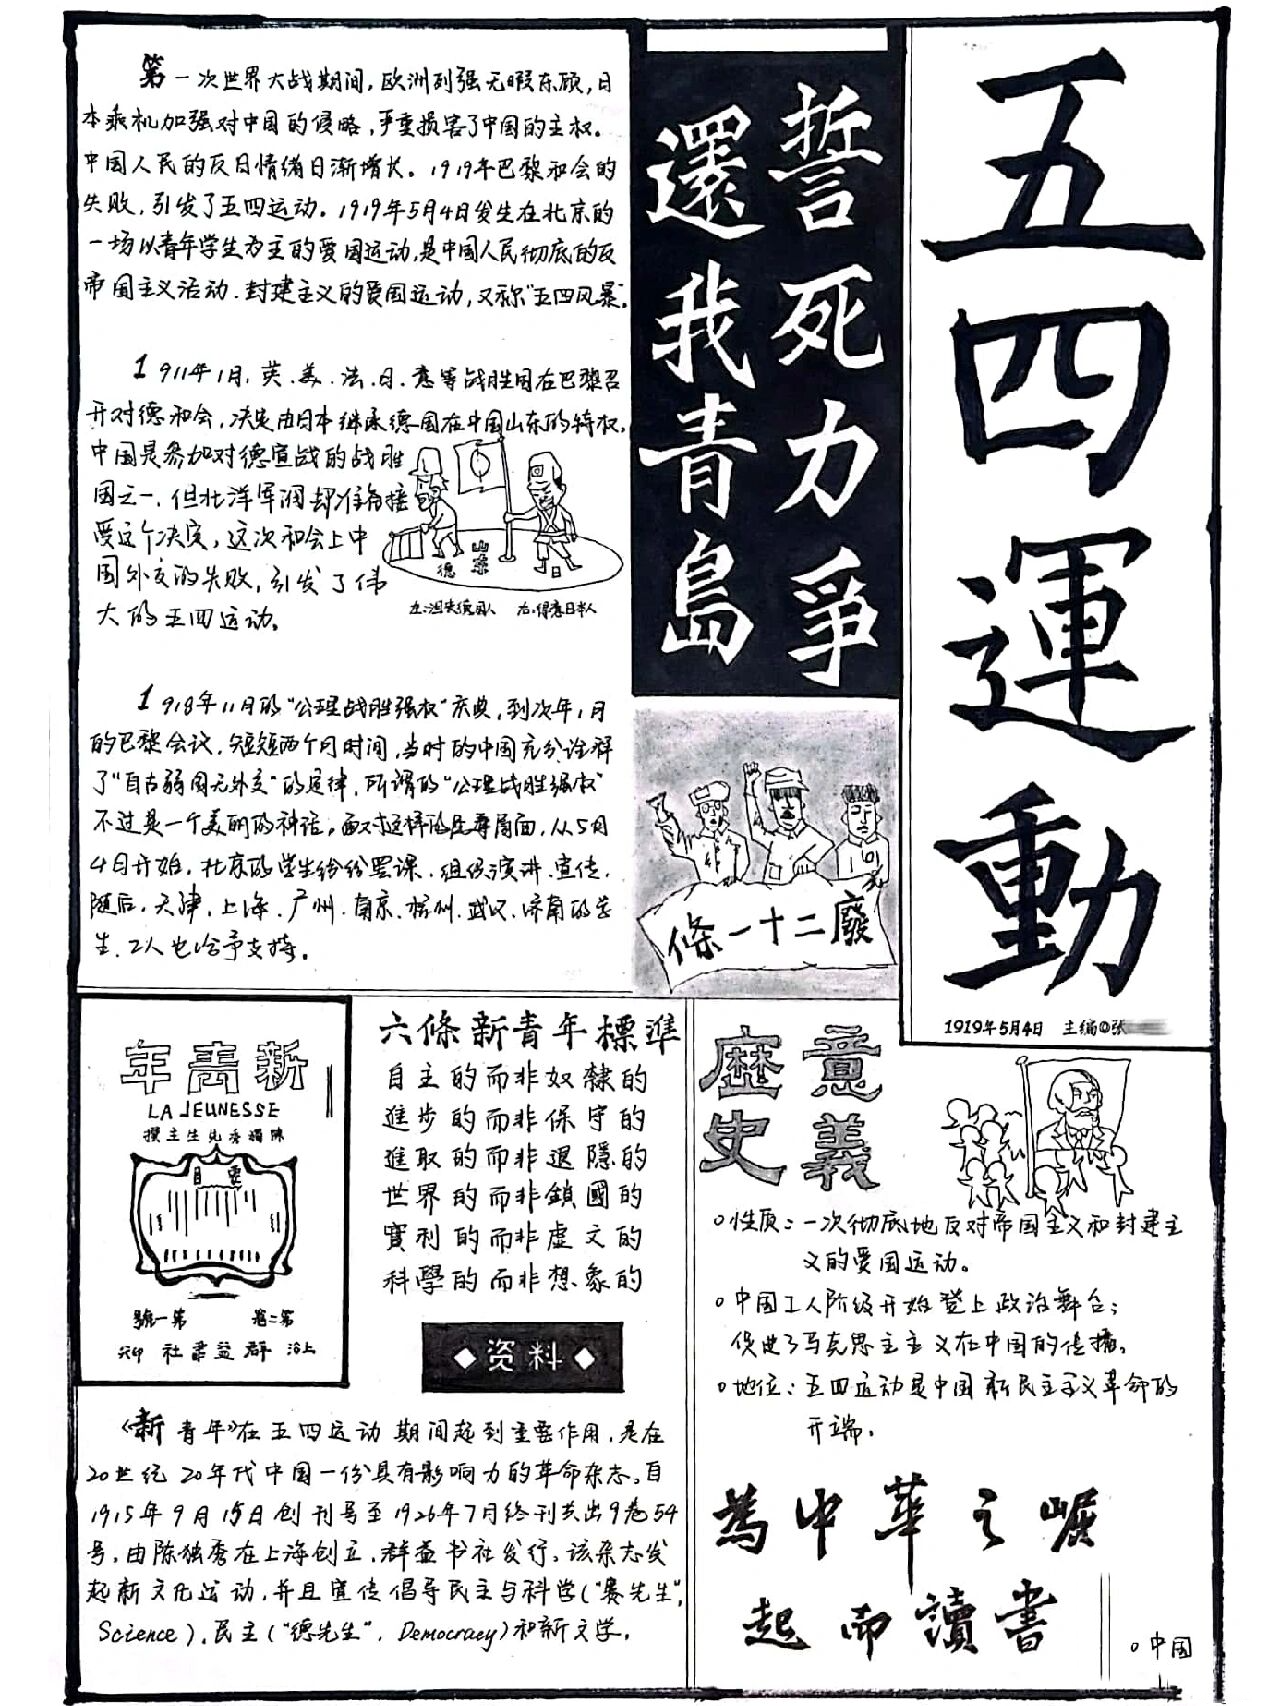 五四運動
1919年5月4日 主编@张
誓死力爭
還我青島
第一次世界大战期间,欧洲列强无暇东顾,日
本乘机加强对中国的侵略,严重损害了中国的主权。
中国人民的反日情绪日渐增长。1919年巴黎和会的
失败,引发了五四运动。1919年5月4日发生在北京的
一场以青年学生为主的爱国运动,是中国人民彻底的反
帝国主义活动.封建主义的爱国运动,又称"五四风暴".
1911年1月,英、美、法、日、意等战胜国在巴黎召
开对德和会,决定由日本继承德国在中国山东的特权,
中国是参加对德宣战的战胜
国之一,但北洋军阀却准备接
受这个决定,这次和会上中
国外交的失败,引发了伟
大的五四运动。
德 山东 日
左:沮丧德国人 右:得意日本人
1918年11月的"公理战胜强权"庆典,到次年1月
的巴黎会议,短短两个月时间,当时的中国充分诠释
了"自古弱国无外交"的定律,所谓的"公理战胜强权"
不过是一个美丽的神话,面对这样的屈辱局面,从5月
4日开始,北京的学生纷纷罢课,组织演讲、宣传,
随后,天津、上海、广州、南京、杭州、武汉、济南的学
生、工人也给予支持。
廢二十一條
新青年
LA JEUNESSE
陳獨秀先生主撰
要目
第二卷 第一號
上海 群益書社 印
六條新青年標準
自主的而非奴隸的
進步的而非保守的
進取的而非退隱的
世界的而非鎖國的
實利的而非虛文的
科學的而非想象的
资料
《新青年》在五四运动期间起到重要作用,是在
20世纪20年代中国一份具有影响力的革命杂志,自
1915年9月15日创刊号至1926年7月终刊共出9卷54
号,由陈独秀在上海创立,群益书社发行。该杂志发
起新文化运动,并且宣传倡导民主与科学("赛先生",
Science),民主("德先生",Democracy)和新文学。
歷史意義
性质:一次彻底地反对帝国主义和封建主
义的爱国运动。
中国工人阶级开始登上政治舞台;
促进了马克思主主义在中国的传播。
地位:五四运动是中国新民主主义革命的
开端。
為中華之崛
起而讀書
中国